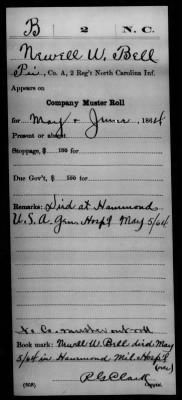 B 2 N.C.
Newell W. Bell
Pvt., Co. A, 2 Reg't North Carolina Inf.
Appears on
Company Muster Roll
for May & June, 1864
Present or absent
Stoppage, $ 100 for
Due Gov't, $ 100 for
Remarks: Died at Hammond
U.S.A. Gen. Hosp't May 5/64
to Co. muster out roll
Book mark: Newell W. Bell died May
5/64 in Hammond Mil. Hosp't
(over)
R G Clark
(508) Copyist.